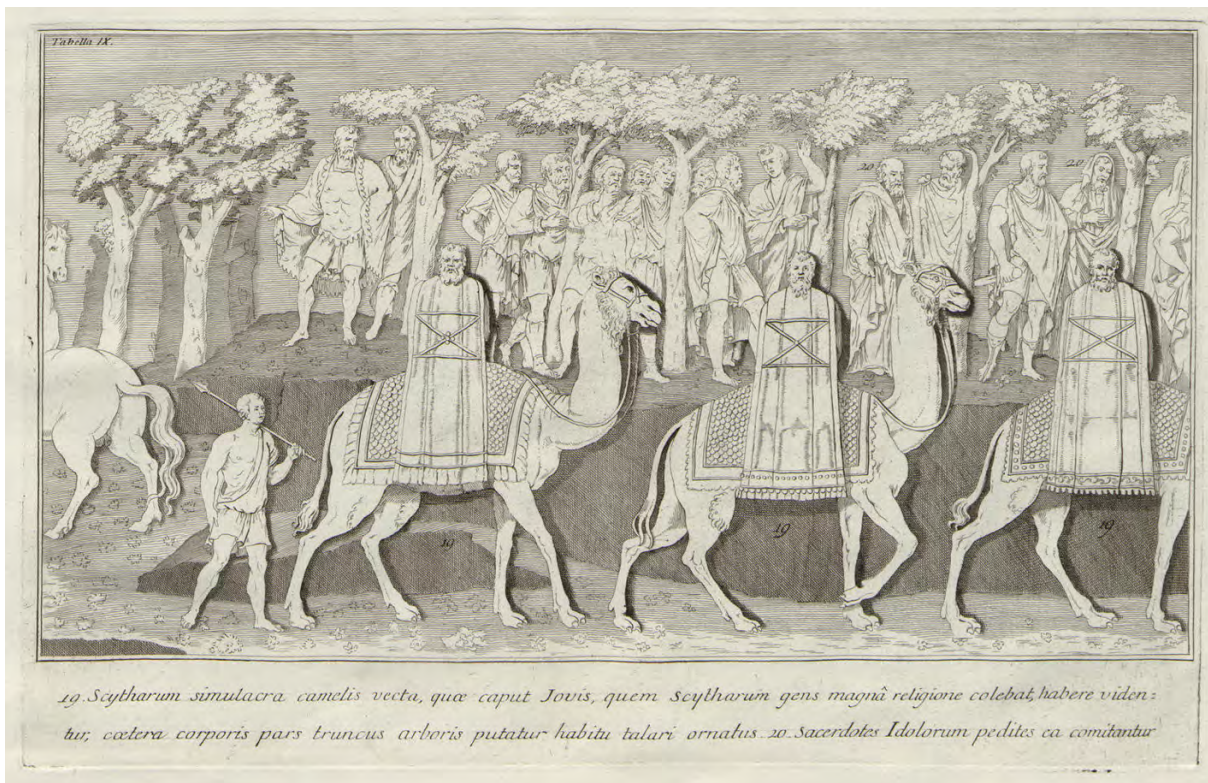 Tabella IX.
20
20
19
19
19
19. Scytharum simulacra camelis vecta, quæ caput Jovis, quem Scytharum gens magnâ religione colebat, habere viden=
tur, cætera corporis pars truncus arboris putatur habitu talari ornatus. 20. Sacerdotes Idolorum pedites ea comitantur